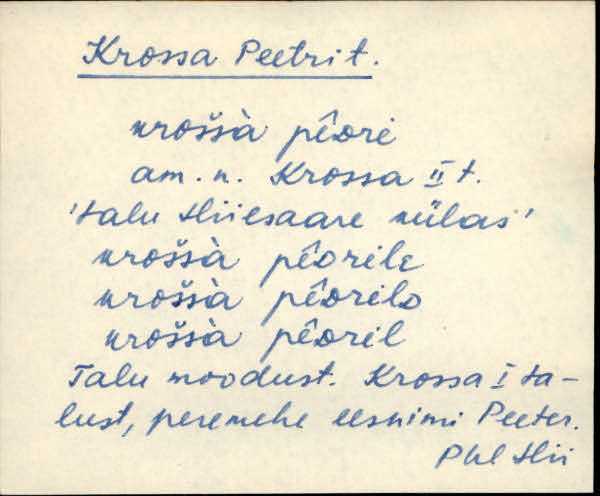 Krossa Peetri t.
krošsà pêᴅri
am. n. Krossa II t.
'talu Hiiesaare külas'
krošsà pêᴅrile
krošsà pêᴅrilᴅ
krošsà pêᴅril
Talu moodust. Krossa I ta-
lust, peremehe eesnimi Peeter.
Phl Hii